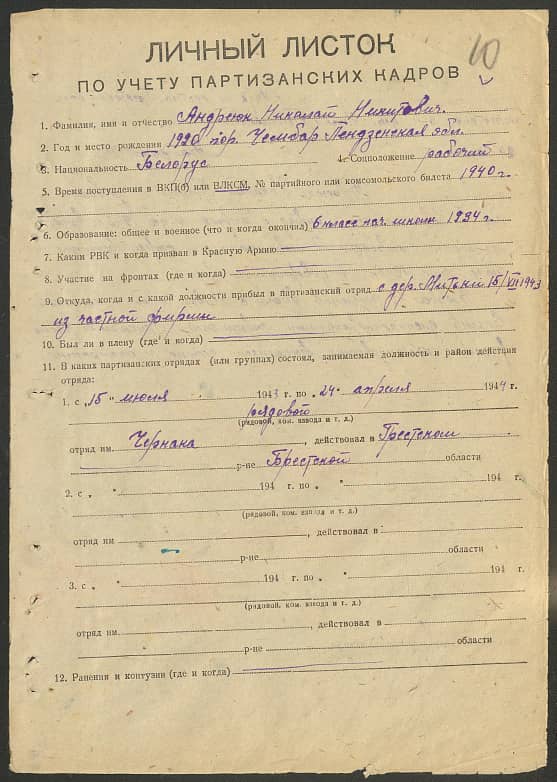 10
ЛИЧНЫЙ ЛИСТОК
ПО УЧЕТУ ПАРТИЗАНСКИХ КАДРОВ
1. Фамилия, имя и отчество Андреюк Николай Никитович.
2. Год и место рождения 1920 гор. Чембар Пендзенская обл.
3. Национальность Белорус 4. Соцположение рабочий
5. Время поступления в ВКП(б) или ВЛКСМ, № партийного или комсомольского билета 1940 г.
6. Образование: общее и военное (что и когда окончил) 6 класс нач. школы 1934 г.
7. Каким РВК и когда призван в Красную Армию
8. Участие на фронтах (где и когда)
9. Откуда, когда и с какой должности прибыл в партизанский отряд с дер. Митьки 15/VII 1943
из частной фирмы
10. Был ли в плену (где и когда)
11. В каких партизанских отрядах (или группах) состоял, занимаемая должность и район действия
отряда:
1. с „15" июля 1943 г. по „24" апреля 1944 г.
рядовой
(рядовой, ком. взвода и т. д.)
отряд им. Чернака, действовал в Брестском
р-не Брестской области
2. с „ " 194 г. по „ " 194 г.
(рядовой, ком. взвода и т. д.)
отряд им , действовал в
р-не области
3. с „ " 194 г. по „ " 194 г.
(рядовой, ком. взвода и т. д.)
отряд им. , действовал в
р-не области
12. Ранения и контузии (где и когда)